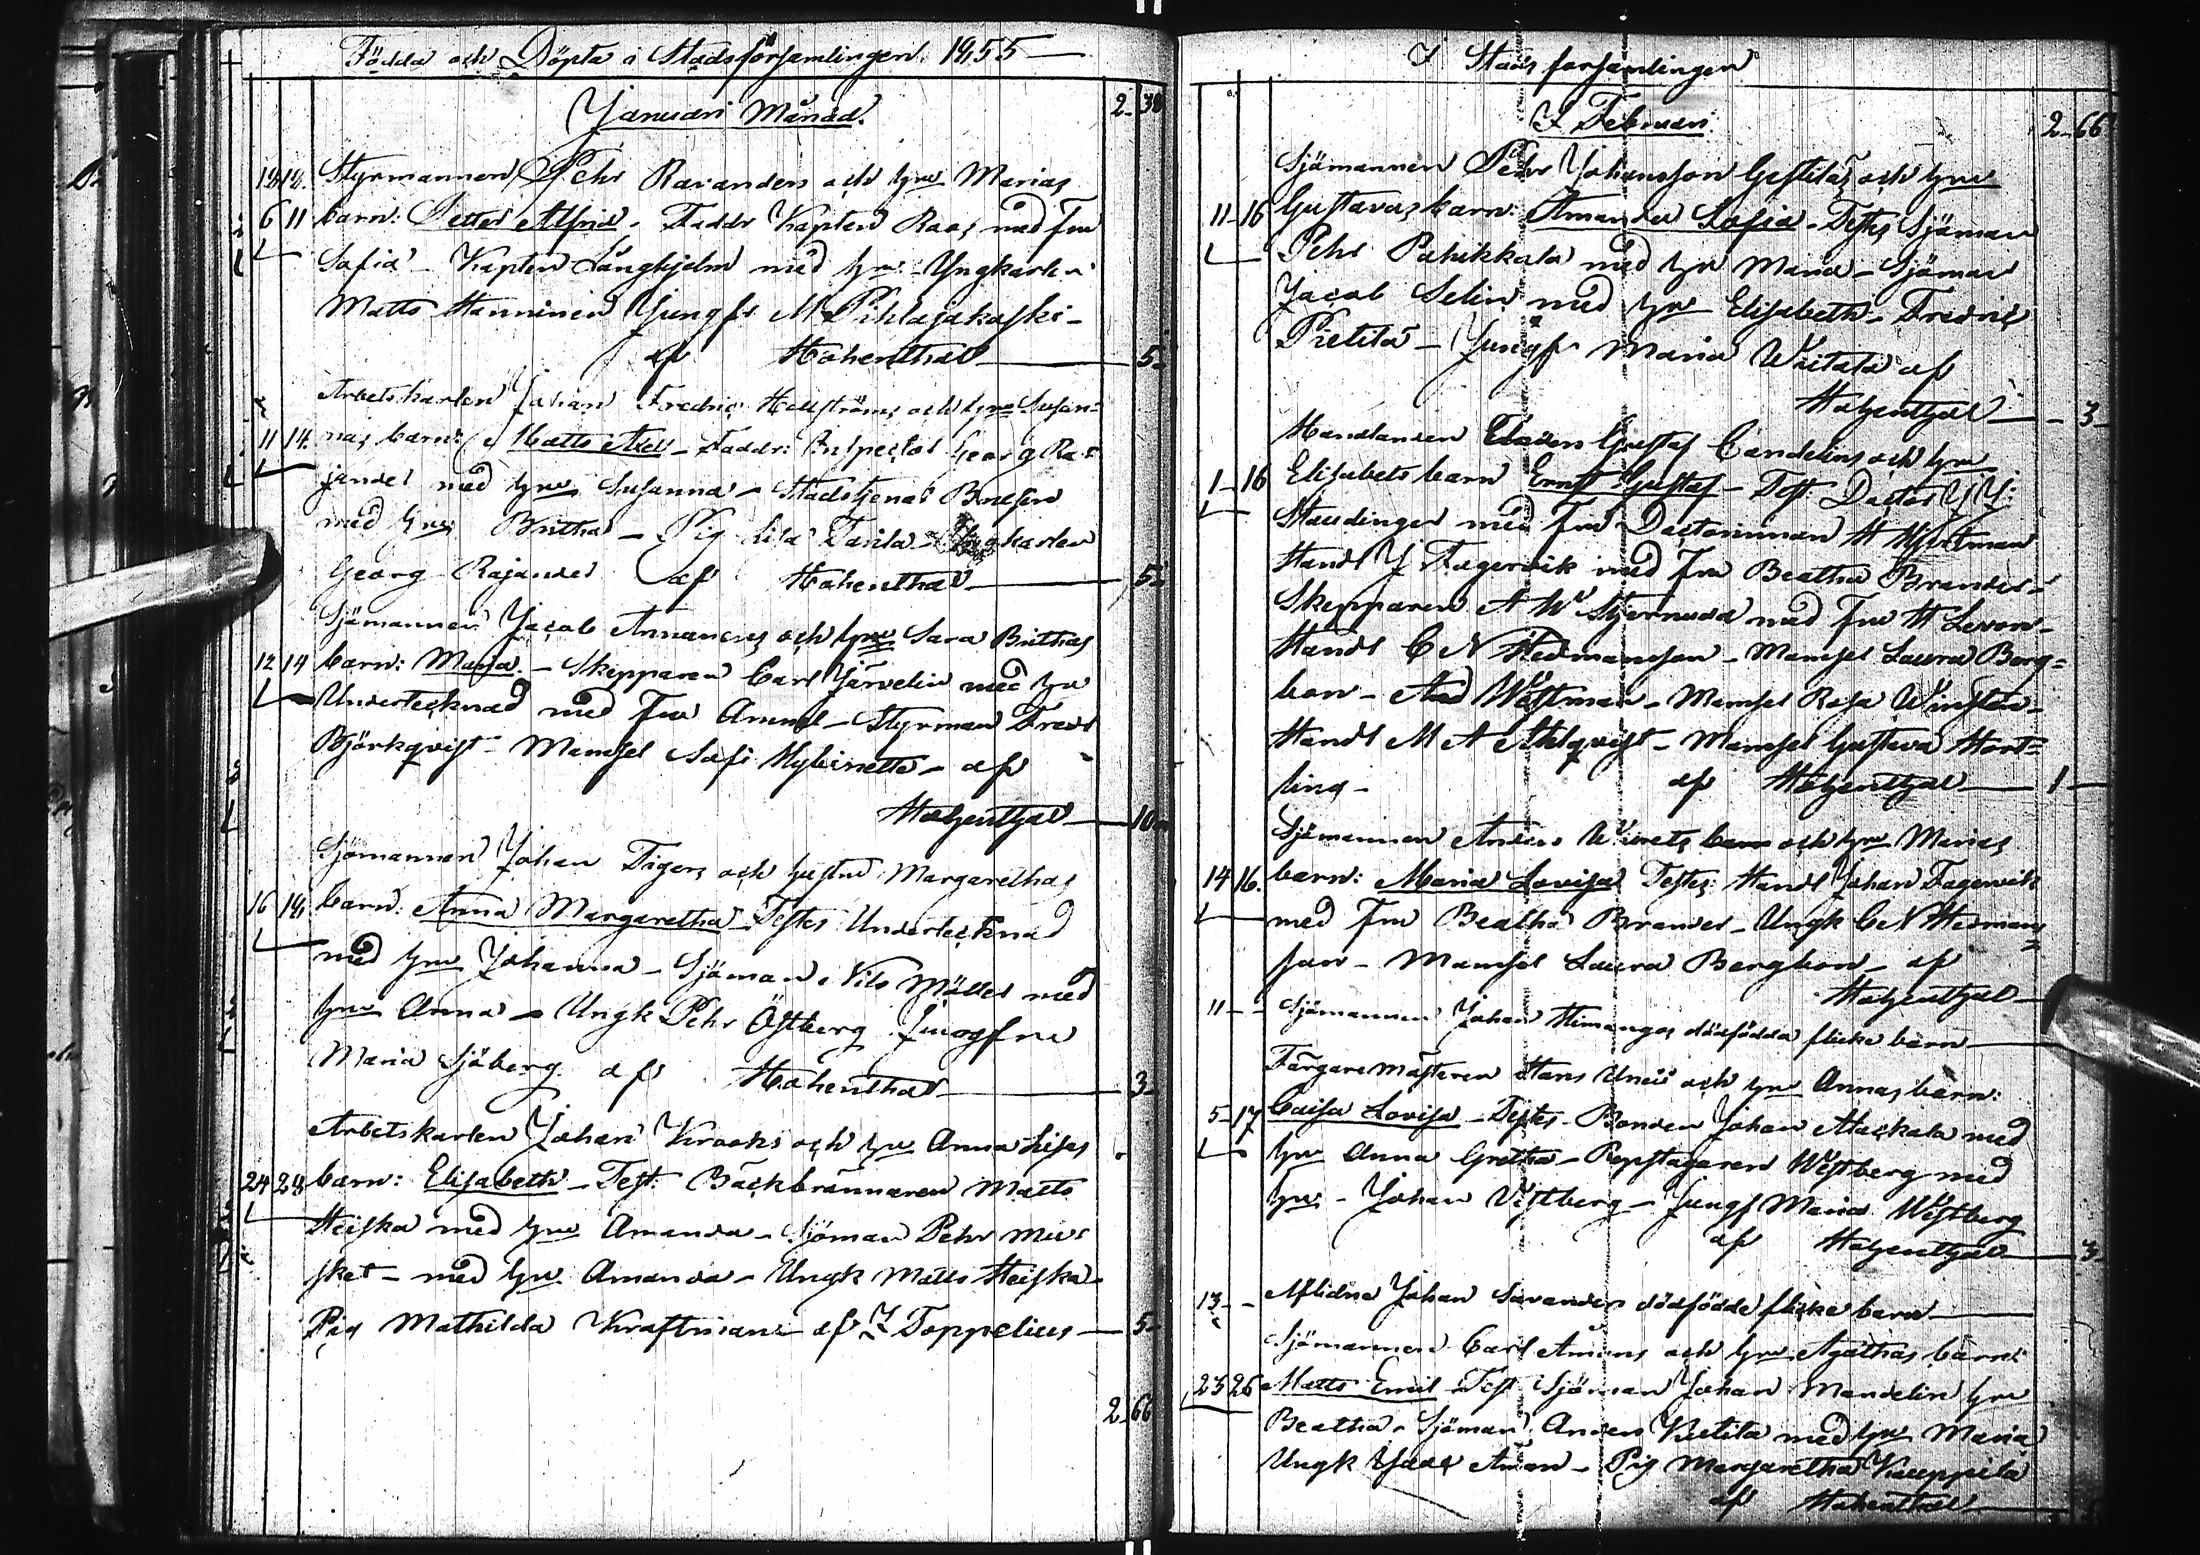 Födda och Döpta i Stadsförsamlingen 1855
Januari Månad. 2 38
18 18. Styrmannen Pehr Ravanders och hru Marias
6 11 barn: Petter Alfrid. Faddr Kapten Roos med fru
Sofia Kapten Långhjelm med hru Yngkarlen
Matts Hanninen Jungfr M Pihlajakoski
af Hohenthal 5
Arbetskarlen Johan Fredric Hellströms och hru Susan=
11 14. nas barn: Matts Axel Faddr: Inspector Georg Ra=
jander med hru Susanna Stadstjenar
med hru Britha Pig Lisa karlen
Georg Rajander af Hohenthal 5
Sjömannen Jacob och hru Sara Brithas
12 14 barn: Maria. Skepparen Carl Järvelin med hru
Undertecknad med Fru Styrman Fredr
Björkqvist Mamsel Sofi af
Hohenthal 10
Sjömannen Johan Tigers och hustru Margarethas
16 18 barn: Anna Margaretha Testes Undertecknad
med hru Johanna Sjöman Nils Möller med
hru Anna Ungk Pehr Östberg Jungfru
Maria Sjöberg af Hohenthal 3
Arbetskarlen Johan Krooks och hru Anna Lisas
24 28 barn: Elisabeth Test: Bäckbrännaren Matts
Heiska med hru Amanda Sjöman Pehr Mus
ket med hru Amanda Ungk Matts Heiska
Pig Mathilda Kraftman af Z Toppelius 5
2 66
I Stads forsamlingen
I Februari 2 66
Sjömannen Pehr Johansson och hru
11 16 Gustavas barn: Amanda Sofia Testes Sjöman
Pehr Pahikkala med hru Maria Sjöman
Jacob Selin med hru Elisabeth Fredric
Pietilä Jungfr Maria af
Hohenthal 3
Handlanden Gustaf Candelins och hru
1 16 Elisabets barn Ernst Gustaf Test: Doctor
Staudinger med fru Doctorinnan H
Handl J Fagervik med fru Beatha Brander
Skepparen A W Stjernudd med fru H
Handl C N Hedmansson Mamsel Laura Berg=
bom Westman Mamsel Rosa
Handl M A Ahlqvist Mamsel Gustava Hort=
ling af Hohenthal 1
Sjömannen Anders barn och hru Marias
14 16. barn: Maria Lovisa Testes: Handl Johan Fagervik
med fru Beatha Brander Ungk C N Hedmans
son Mamsel Laura Bergbom af
Hohenthal
11 Sjömannen Johan Himangas dödfödda flicke barn
Färgaremästeren Hans och hru Annas barn:
5 17 Caisa Lovisa Testes Bonden Johan med
hru Anna Gretha Repslagaren Westberg med
hru Johan Westberg Jungf Maria Westberg
af Hohenthal 3
13 Aflidne Johan Savanders dödfödde flicke barn
Sjömannen Carl Åmans och hru Agathas barn
23 26 Matts Emil Test Sjöman Johan Mandelin hru
Beatha Sjöman Anders med hru Maria
Ungk Åman Pig Margaretha Kauppila
af Hohenthal